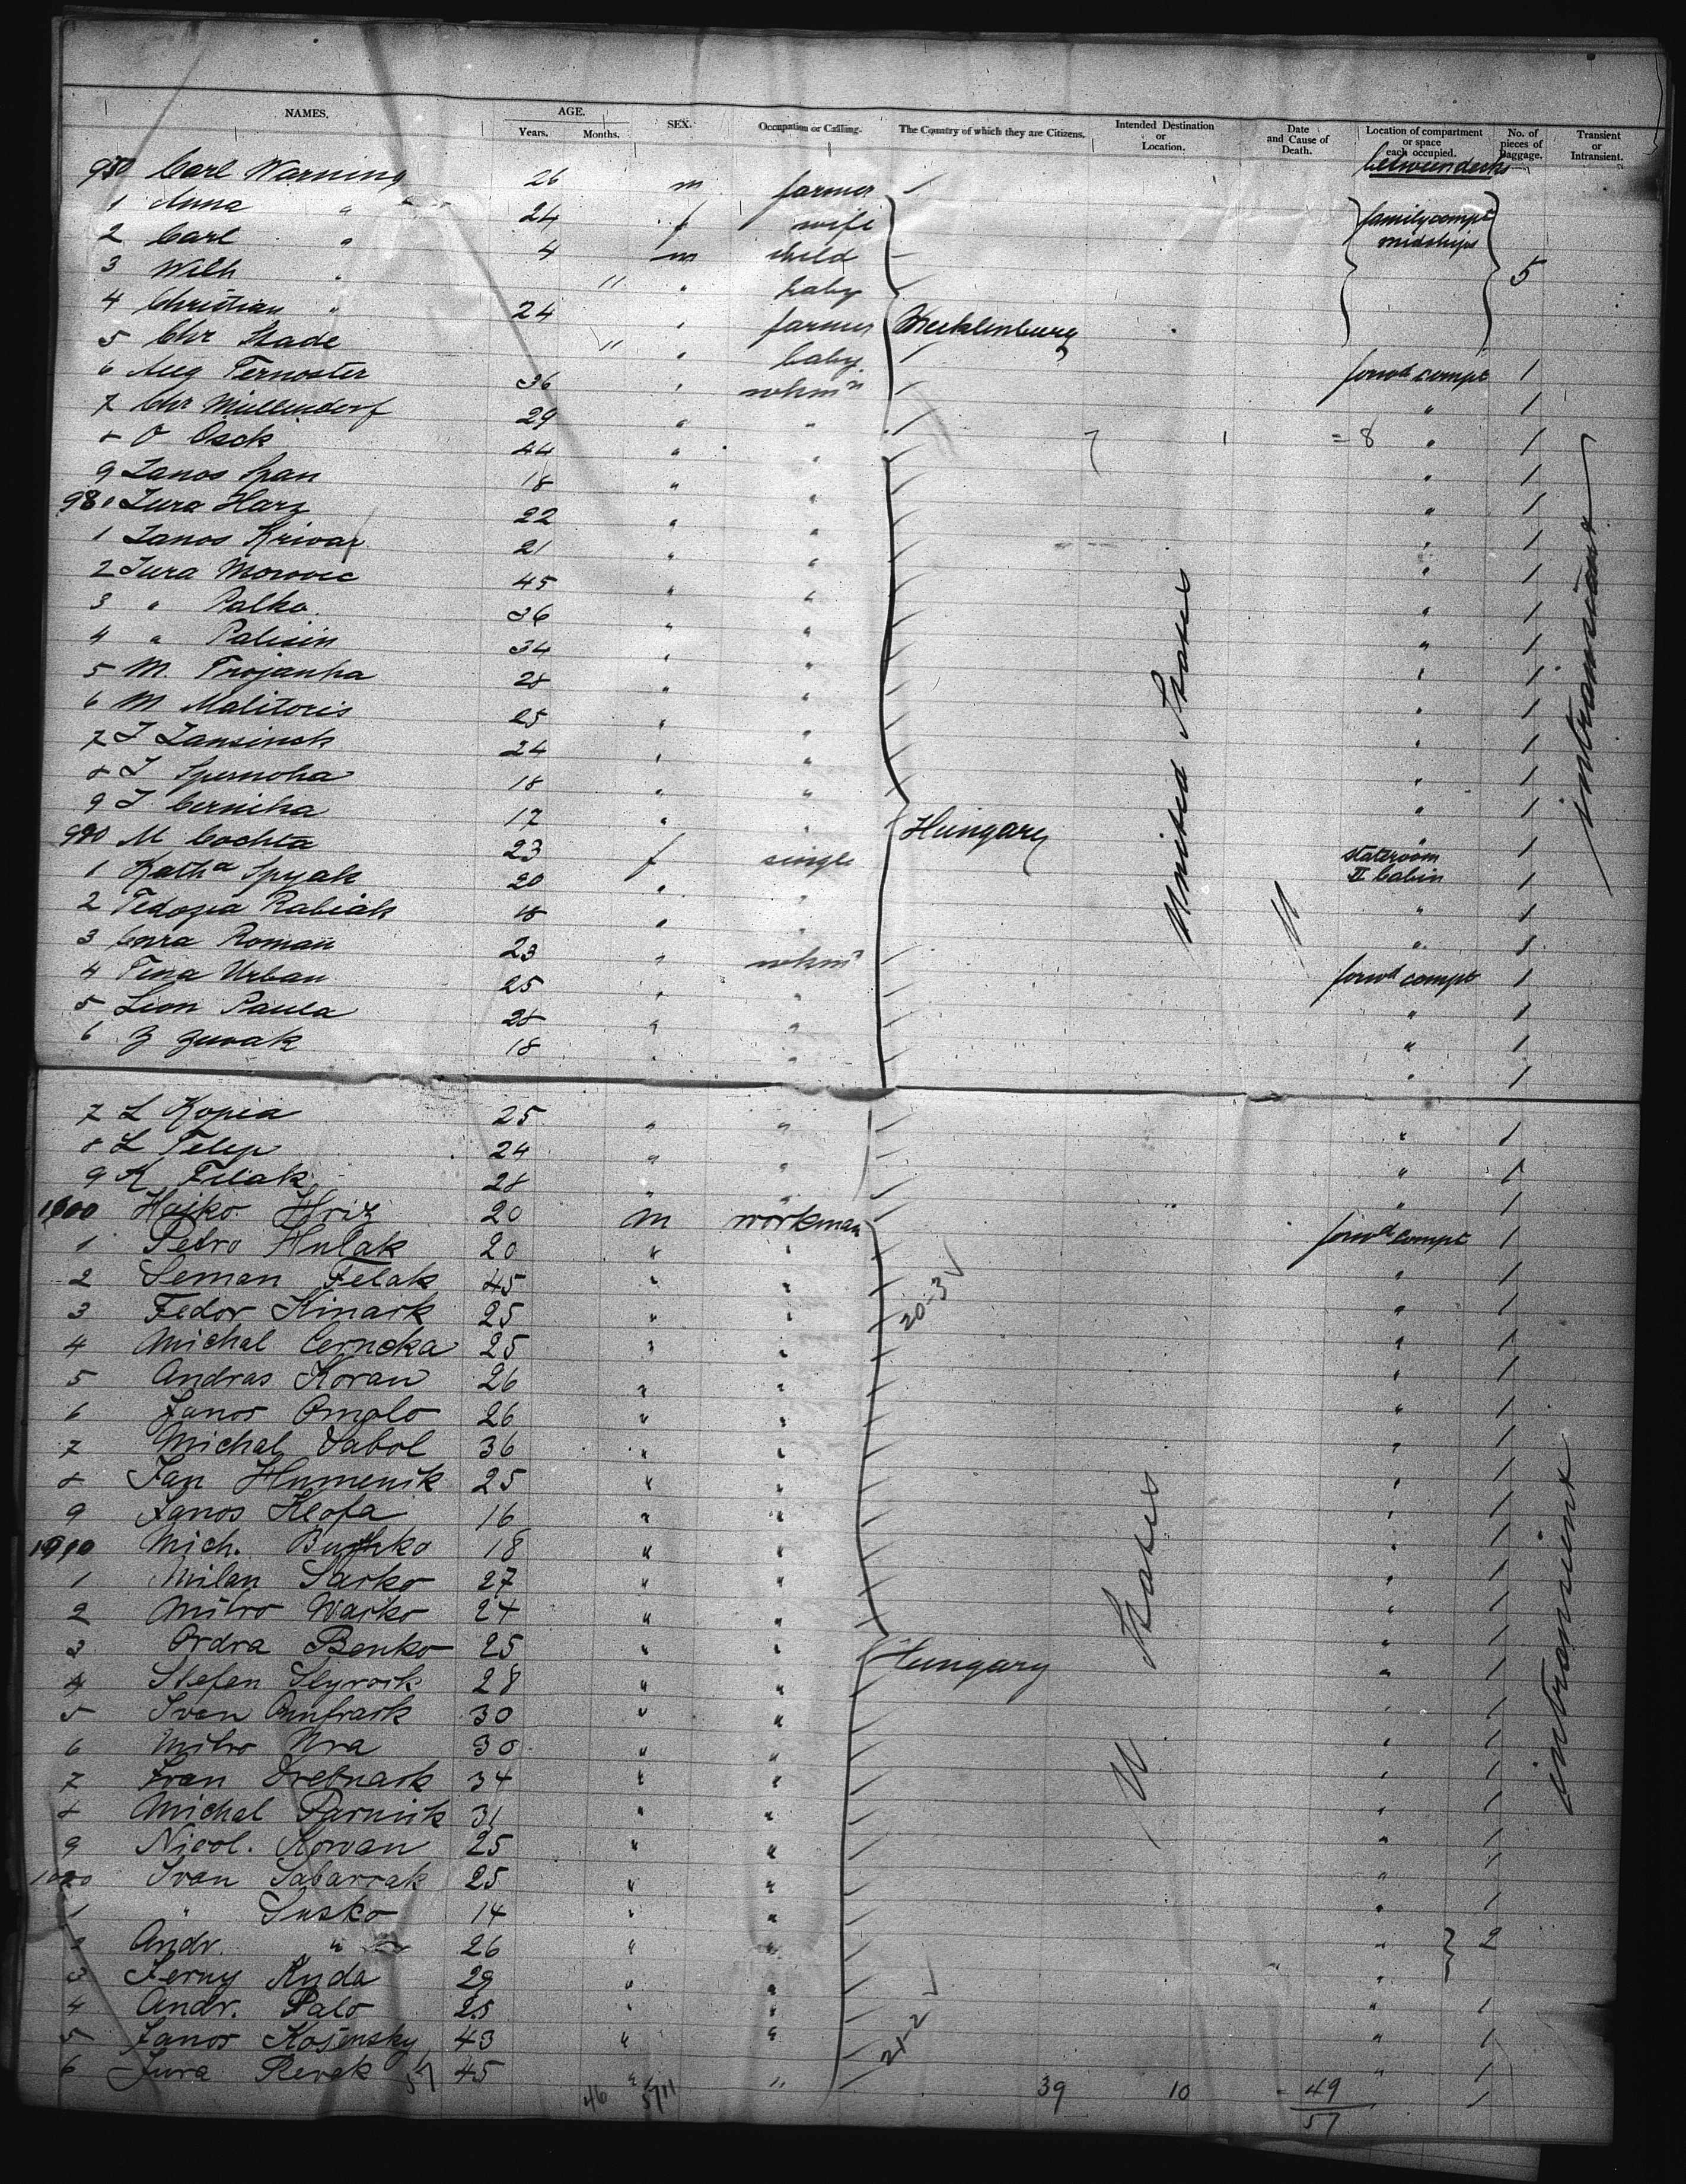 NAMES. AGE. Years. Months. SEX. Occupation or Calling. The Country of which they are Citizens. Intended Destination or Location. Date and Cause of Death. Location of compartment or space each occupied. No. of pieces of Baggage. Transient or Intransient.
betweendecks
Carl Warning 26 m farmer
1 Anna " 24 f wife family compt
2 Carl " 4 m child midships
3 Wilh " 11 " baby 5
4 Christian " 24 " farmer Mecklenburg
5 Chr Stade 11 " baby
6 Aug Fernoster 36 " wkmn forwd compt 1
7 Chr Müllendorf 29 " " " 1
8 O Osck 44 " " = 8 " 1
9 Janos Span 18 " " " 1
980 Jura Harz 22 " " " 1
1 Janos Krivar 21 " " " 1
2 Jura Morovic 45 " " " 1
3 " Palko 36 " " " 1
4 " Palisin 34 " " " 1
5 M. Trojanha 28 " " " 1
6 M Malitoris 25 " " " 1
7 J Jansinsk 24 " " " 1
8 J Spernoha 18 " " " 1
9 J. Cerniha 17 " " Hungary " 1
990 M Cochta 23 f single stateroom II Cabin 1
1 Katha Spyak 20 " " 1
2 Fedozia Rabiak 18 " " " 1
3 Roman 23 " wkmn 1
4 Tina Urban 25 " " forwd compt 1
5 Lion Paula 28 " " " 1
6 Z Zuvak 18 " " " 1
7 L Kopia 25 " " " 1
8 L Telep 24 " " " 1
9 K Filak 28 " " " 1
1000 Hajko Hriz 20 m workman forwd compt 1
1 Petro Hulak 20 " " " 1
2 Seman Felak 45 " " " 1
3 Fedor Kinark 25 " " 20-3 " 1
4 Michal Cerncka 25 " " " 1
5 Andras Koran 26 " " " 1
6 Janos Omolo 26 " " " 1
7 Michal Sabol 36 " " " 1
8 Jan Humenik 25 " " " 1
9 Janos Klofa 16 " " " 1
1010 Mich. 18 " " " 1
1 Milan Sarko 27 " " " 1
2 Mitro Warko 24 " " " 1
3 Ordra Benko 25 " " Hungary " 1
4 Stefen Slyvork 28 " " " 1
5 Ivan Onufrark 30 " " " 1
6 Mitro Ura 30 " " " 1
7 Ivan 34 " " " 1
8 Michal Parnick 31 " " " 1
9 Nicol. Korvan 25 " " " 1
1020 Ivan Sabarrak 25 " " " 1
1 " Susko 14 " " "
2 Andr. " 26 " " " 2
3 Ferny Ruda 29 " " "
4 Andr. Palo 25 " " " 1
5 Janos Kosensky 43 " " 21-2 " 1
6 Jura Revak 45 " " " 1
57 46 57 11 39 10 - 49
57
United States
intransient
U States
intransient